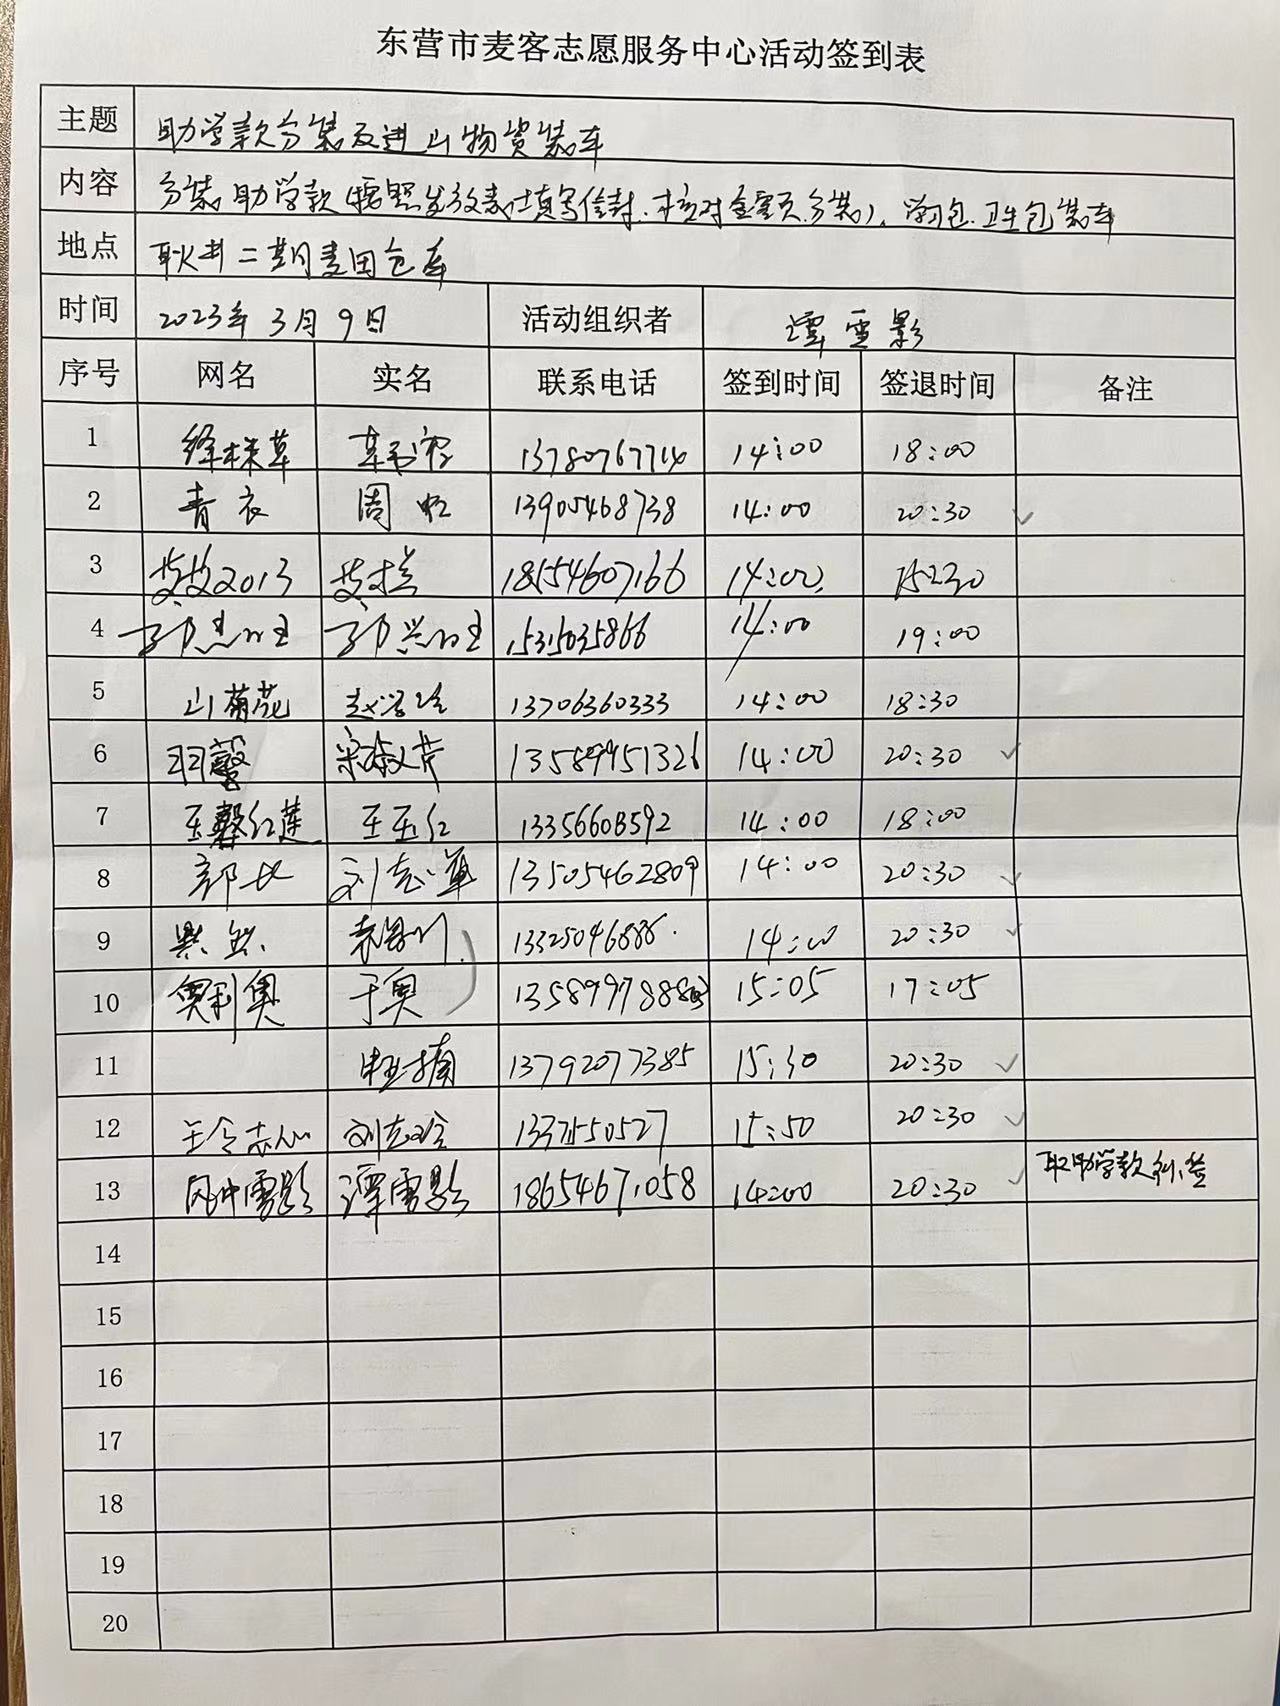 东营市麦客志愿服务中心活动签到表
主题 助学款分装及进山物资装车
内容 分装助学款(按照发放表填写信封.核对金额.分装)、学习包.卫生包装车
地点 耿井二期麦田仓库
时间 2023年3月9日 活动组织者 谭雪影
序号 网名 实名 联系电话 签到时间 签退时间 备注
1 绛株草 13780767714 14:00 18:00
2 青衣 周 13905468738 14:00 20:30 ✓
3 2013 18554607166 14:00 15:30
4 15315035866 14:00 19:00
5 山菊花 赵 13706360333 14:00 18:30
6 羽馨 宋淑芹 13589951326 14:00 20:30 ✓
7 玉馨红莲 王玉红 13356608592 14:00 18:00
8 部长 刘志军 13505462809 14:00 20:30 ✓
9 14:00 20:30 ✓
10 奥利奥 于奥 15:05 17:05
11 13792077385 15:30 20:30 ✓
12 刘志玲 15:50 20:30 ✓
13 风中雪影 谭雪影 18654671058 14:00 20:30 ✓ 取助学款
14
15
16
17
18
19
20